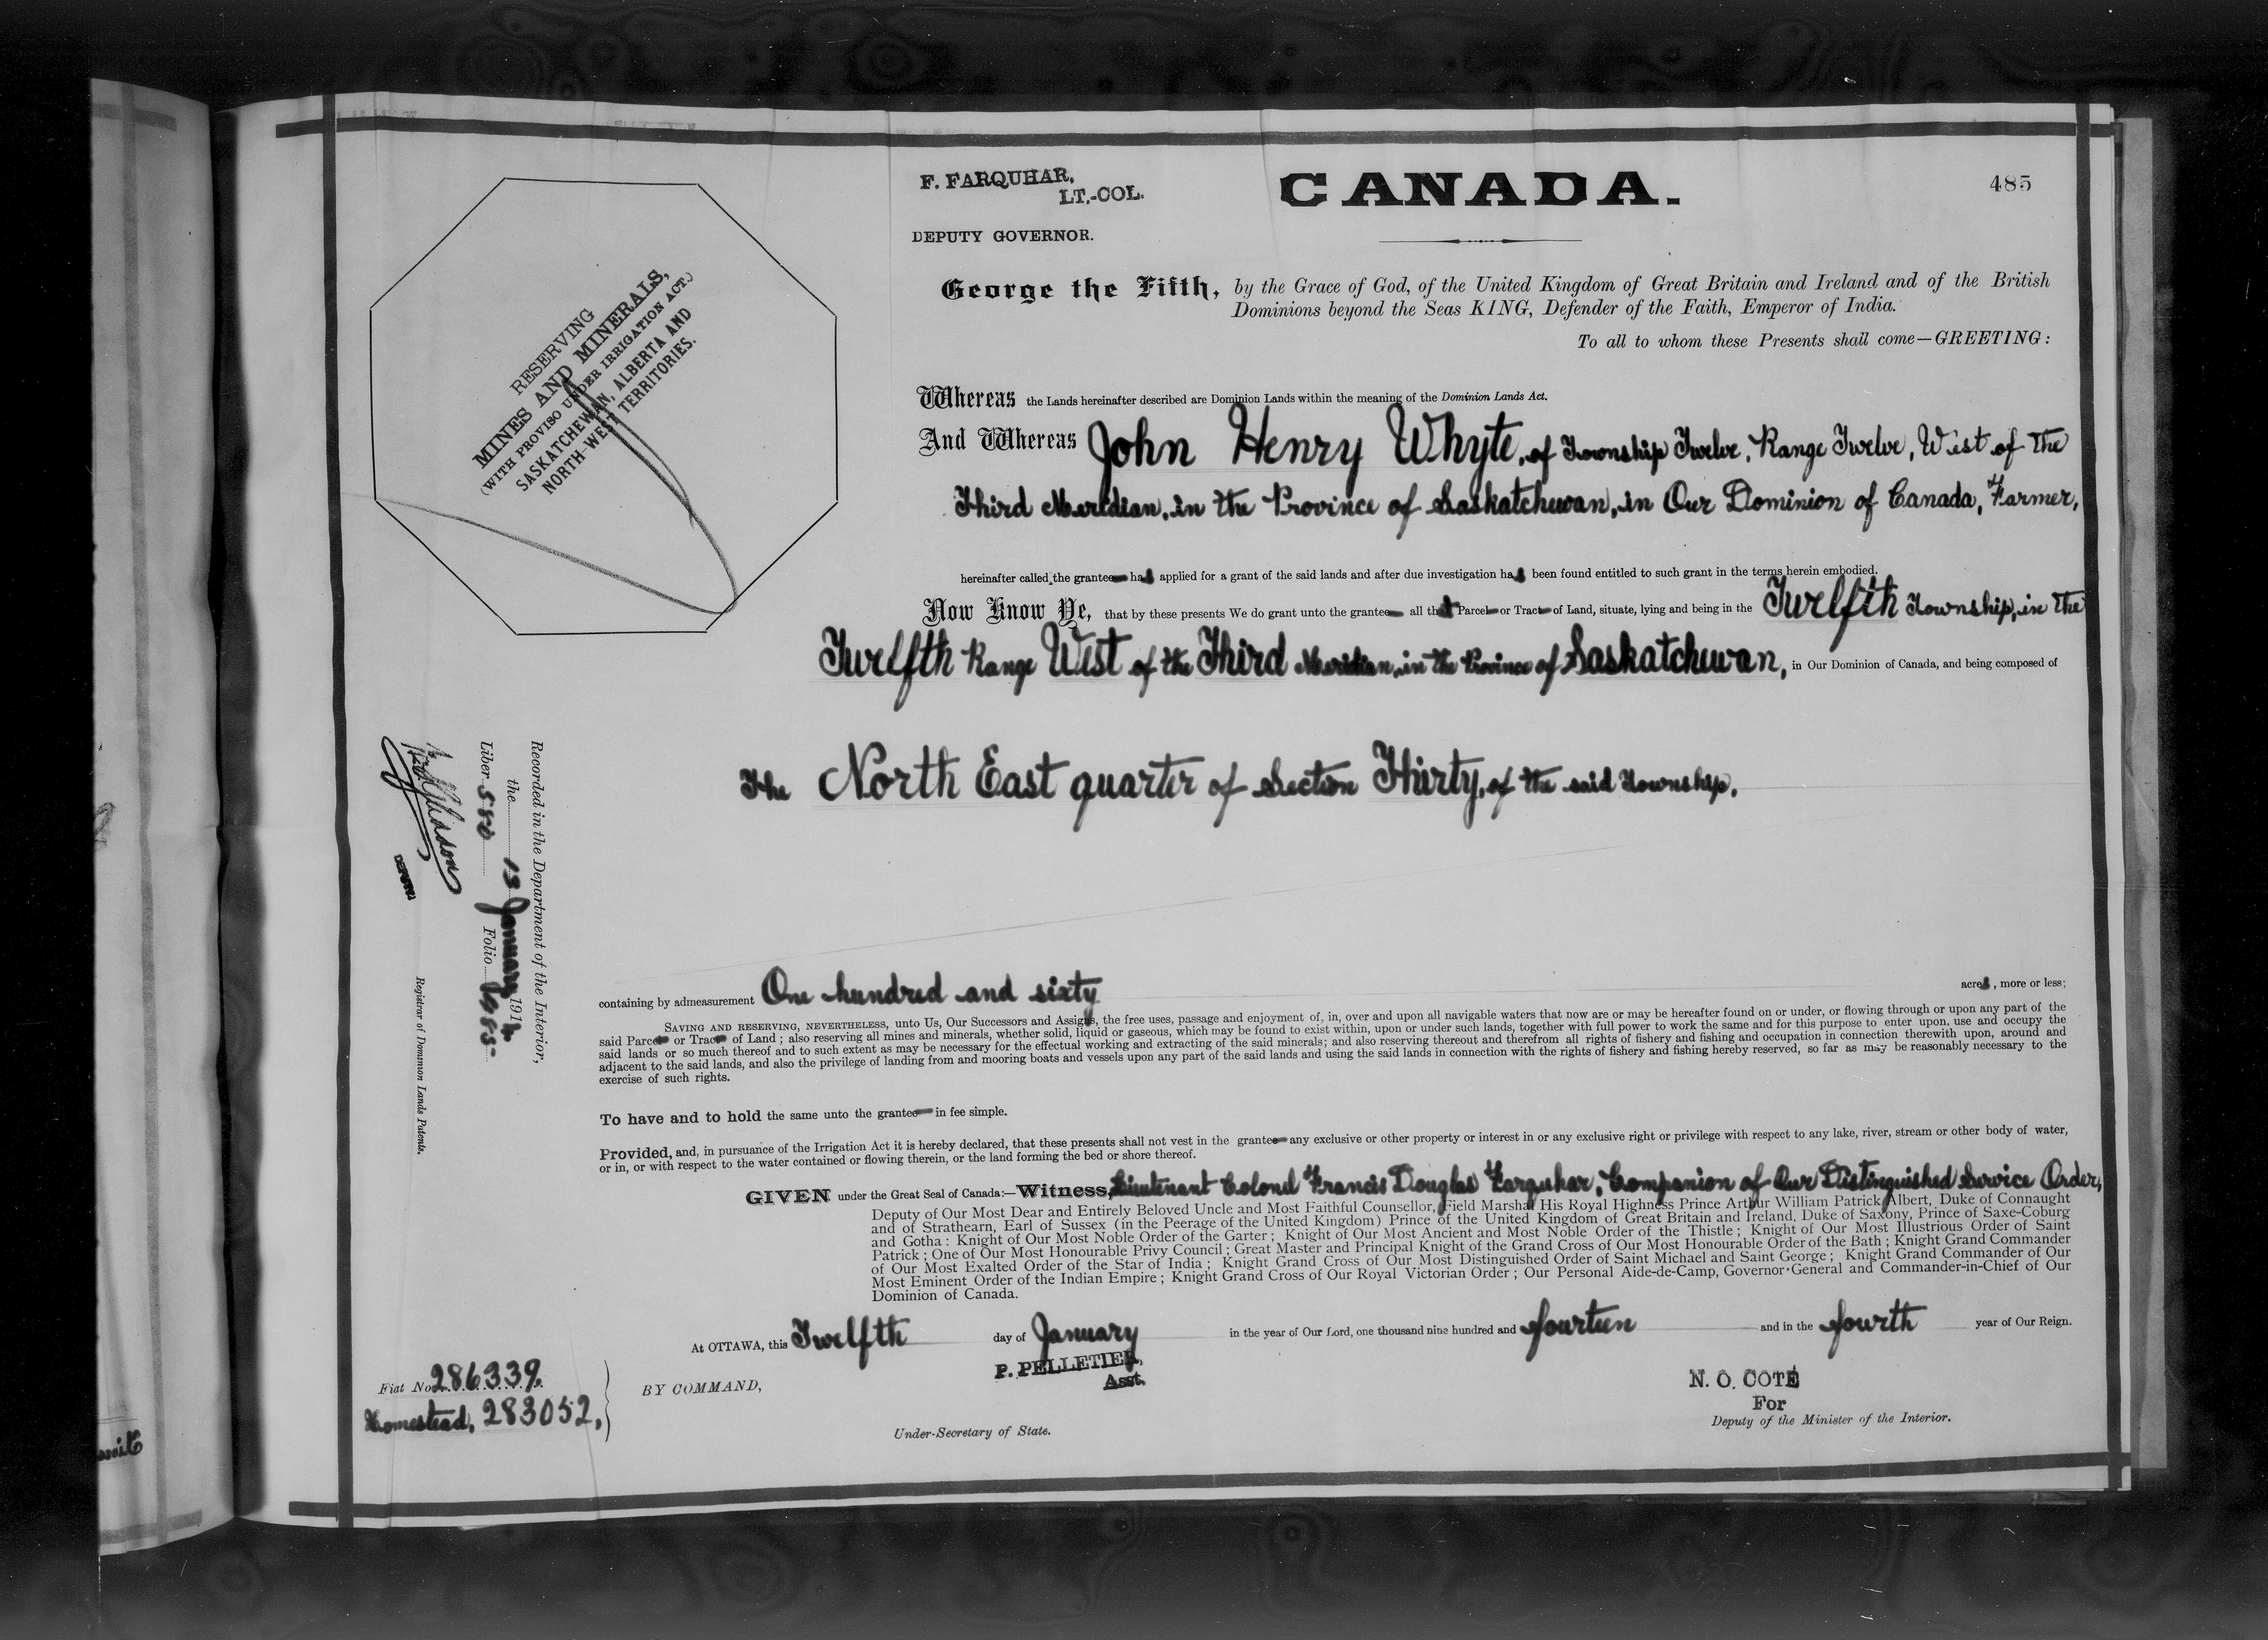 F. FARQUHAR,
LT.-COL.
DEPUTY GOVERNOR.
CANADA.
485
RESERVING
MINES AND MINERALS,
(WITH PROVISO UNDER IRRIGATION ACT.)
SASKATCHEWAN, ALBERTA AND
NORTH-WEST TERRITORIES.
George the Fifth, by the Grace of God, of the United Kingdom of Great Britain and Ireland and of the British
Dominions beyond the Seas KING, Defender of the Faith, Emperor of India.
To all to whom these Presents shall come—GREETING:
Whereas the Lands hereinafter described are Dominion Lands within the meaning of the Dominion Lands Act.
And Whereas John Henry Whyte, of Township Twelve, Range Twelve, West of the
Third Meridian, in the Province of Saskatchewan, in Our Dominion of Canada, Farmer,
hereinafter called the grantee has applied for a grant of the said lands and after due investigation has been found entitled to such grant in the terms herein embodied.
Now Know Ye, that by these presents We do grant unto the grantee all that Parcel or Tract of Land, situate, lying and being in the Twelfth Township, in the
Twelfth Range West of the Third Meridian, in the Province of Saskatchewan, in Our Dominion of Canada, and being composed of
The North East quarter of Section Thirty, of the said Township,
Recorded in the Department of the Interior,
the 13 January 1914
Liber 580 Folio
Registrar of Dominion Lands Patents.
containing by admeasurement One hundred and sixty acres, more or less;
SAVING AND RESERVING, NEVERTHELESS, unto Us, Our Successors and Assigns, the free uses, passage and enjoyment of, in, over and upon all navigable waters that now are or may be hereafter found on or under, or flowing through or upon any part of the
said Parcel or Tract of Land; also reserving all mines and minerals, whether solid, liquid or gaseous, which may be found to exist within, upon or under such lands, together with full power to work the same and for this purpose to enter upon, use and occupy the
said lands or so much thereof and to such extent as may be necessary for the effectual working and extracting of the said minerals; and also reserving thereout and therefrom all rights of fishery and fishing and occupation in connection therewith upon, around and
adjacent to the said lands, and also the privilege of landing from and mooring boats and vessels upon any part of the said lands and using the said lands in connection with the rights of fishery and fishing hereby reserved, so far as may be reasonably necessary to the
exercise of such rights.
To have and to hold the same unto the grantee in fee simple.
Provided, and, in pursuance of the Irrigation Act it is hereby declared, that these presents shall not vest in the grantee any exclusive or other property or interest in or any exclusive right or privilege with respect to any lake, river, stream or other body of water,
or in, or with respect to the water contained or flowing therein, or the land forming the bed or shore thereof.
GIVEN under the Great Seal of Canada:—Witness, Lieutenant Colonel Francis Douglas Farquhar, Companion of Our Distinguished Service Order,
Deputy of Our Most Dear and Entirely Beloved Uncle and Most Faithful Counsellor, Field Marshal His Royal Highness Prince Arthur William Patrick Albert, Duke of Connaught
and of Strathearn, Earl of Sussex (in the Peerage of the United Kingdom) Prince of the United Kingdom of Great Britain and Ireland, Duke of Saxony, Prince of Saxe-Coburg
and Gotha: Knight of Our Most Noble Order of the Garter; Knight of Our Most Ancient and Most Noble Order of the Thistle; Knight of Our Most Illustrious Order of Saint
Patrick; One of Our Most Honourable Privy Council; Great Master and Principal Knight of the Grand Cross of Our Most Honourable Order of the Bath; Knight Grand Commander
of Our Most Exalted Order of the Star of India; Knight Grand Cross of Our Most Distinguished Order of Saint Michael and Saint George; Knight Grand Commander of Our
Most Eminent Order of the Indian Empire; Knight Grand Cross of Our Royal Victorian Order; Our Personal Aide-de-Camp, Governor-General and Commander-in-Chief of Our
Dominion of Canada.
At OTTAWA, this Twelfth day of January in the year of Our Lord, one thousand nine hundred and fourteen and in the fourth year of Our Reign.
Fiat No. 286339.
Homestead, 283052,
BY COMMAND,
P. PELLETIER,
Asst.
Under-Secretary of State.
N. O. COTÉ
For
Deputy of the Minister of the Interior.